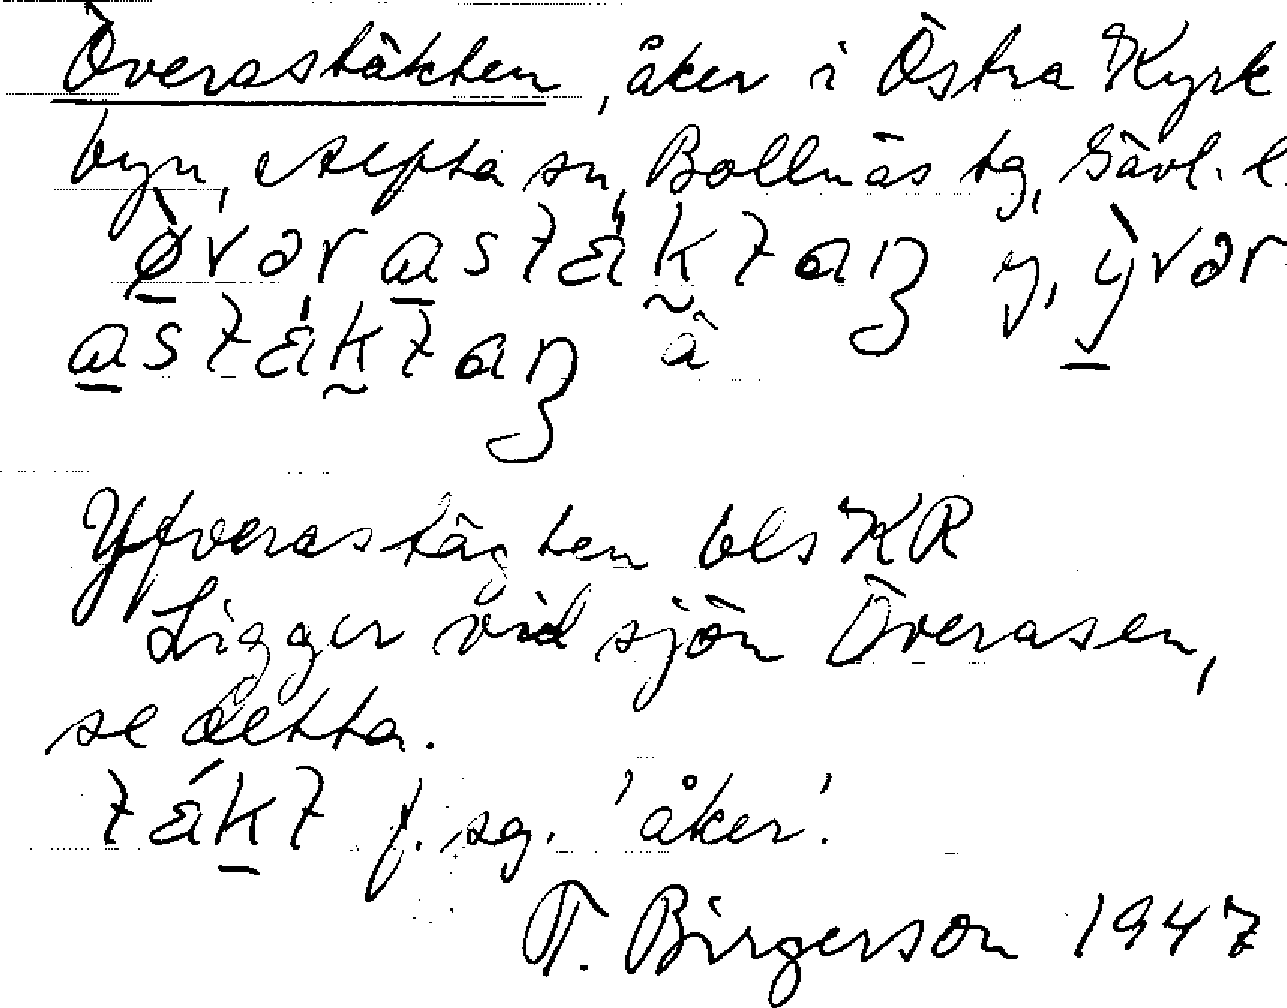 Överastäkten, åker i Östra Kyrk
byn, Alfta sn, Bollnäs tg, Gävl. l.
ø̀vərastäktaɲ y, ỳvər
astäktaɲ ä
Yfverastägten bls KR
Ligger vid sjön Överasen,
se detta.
täkt f. sg. 'åker'.
T. Birgerson 1947